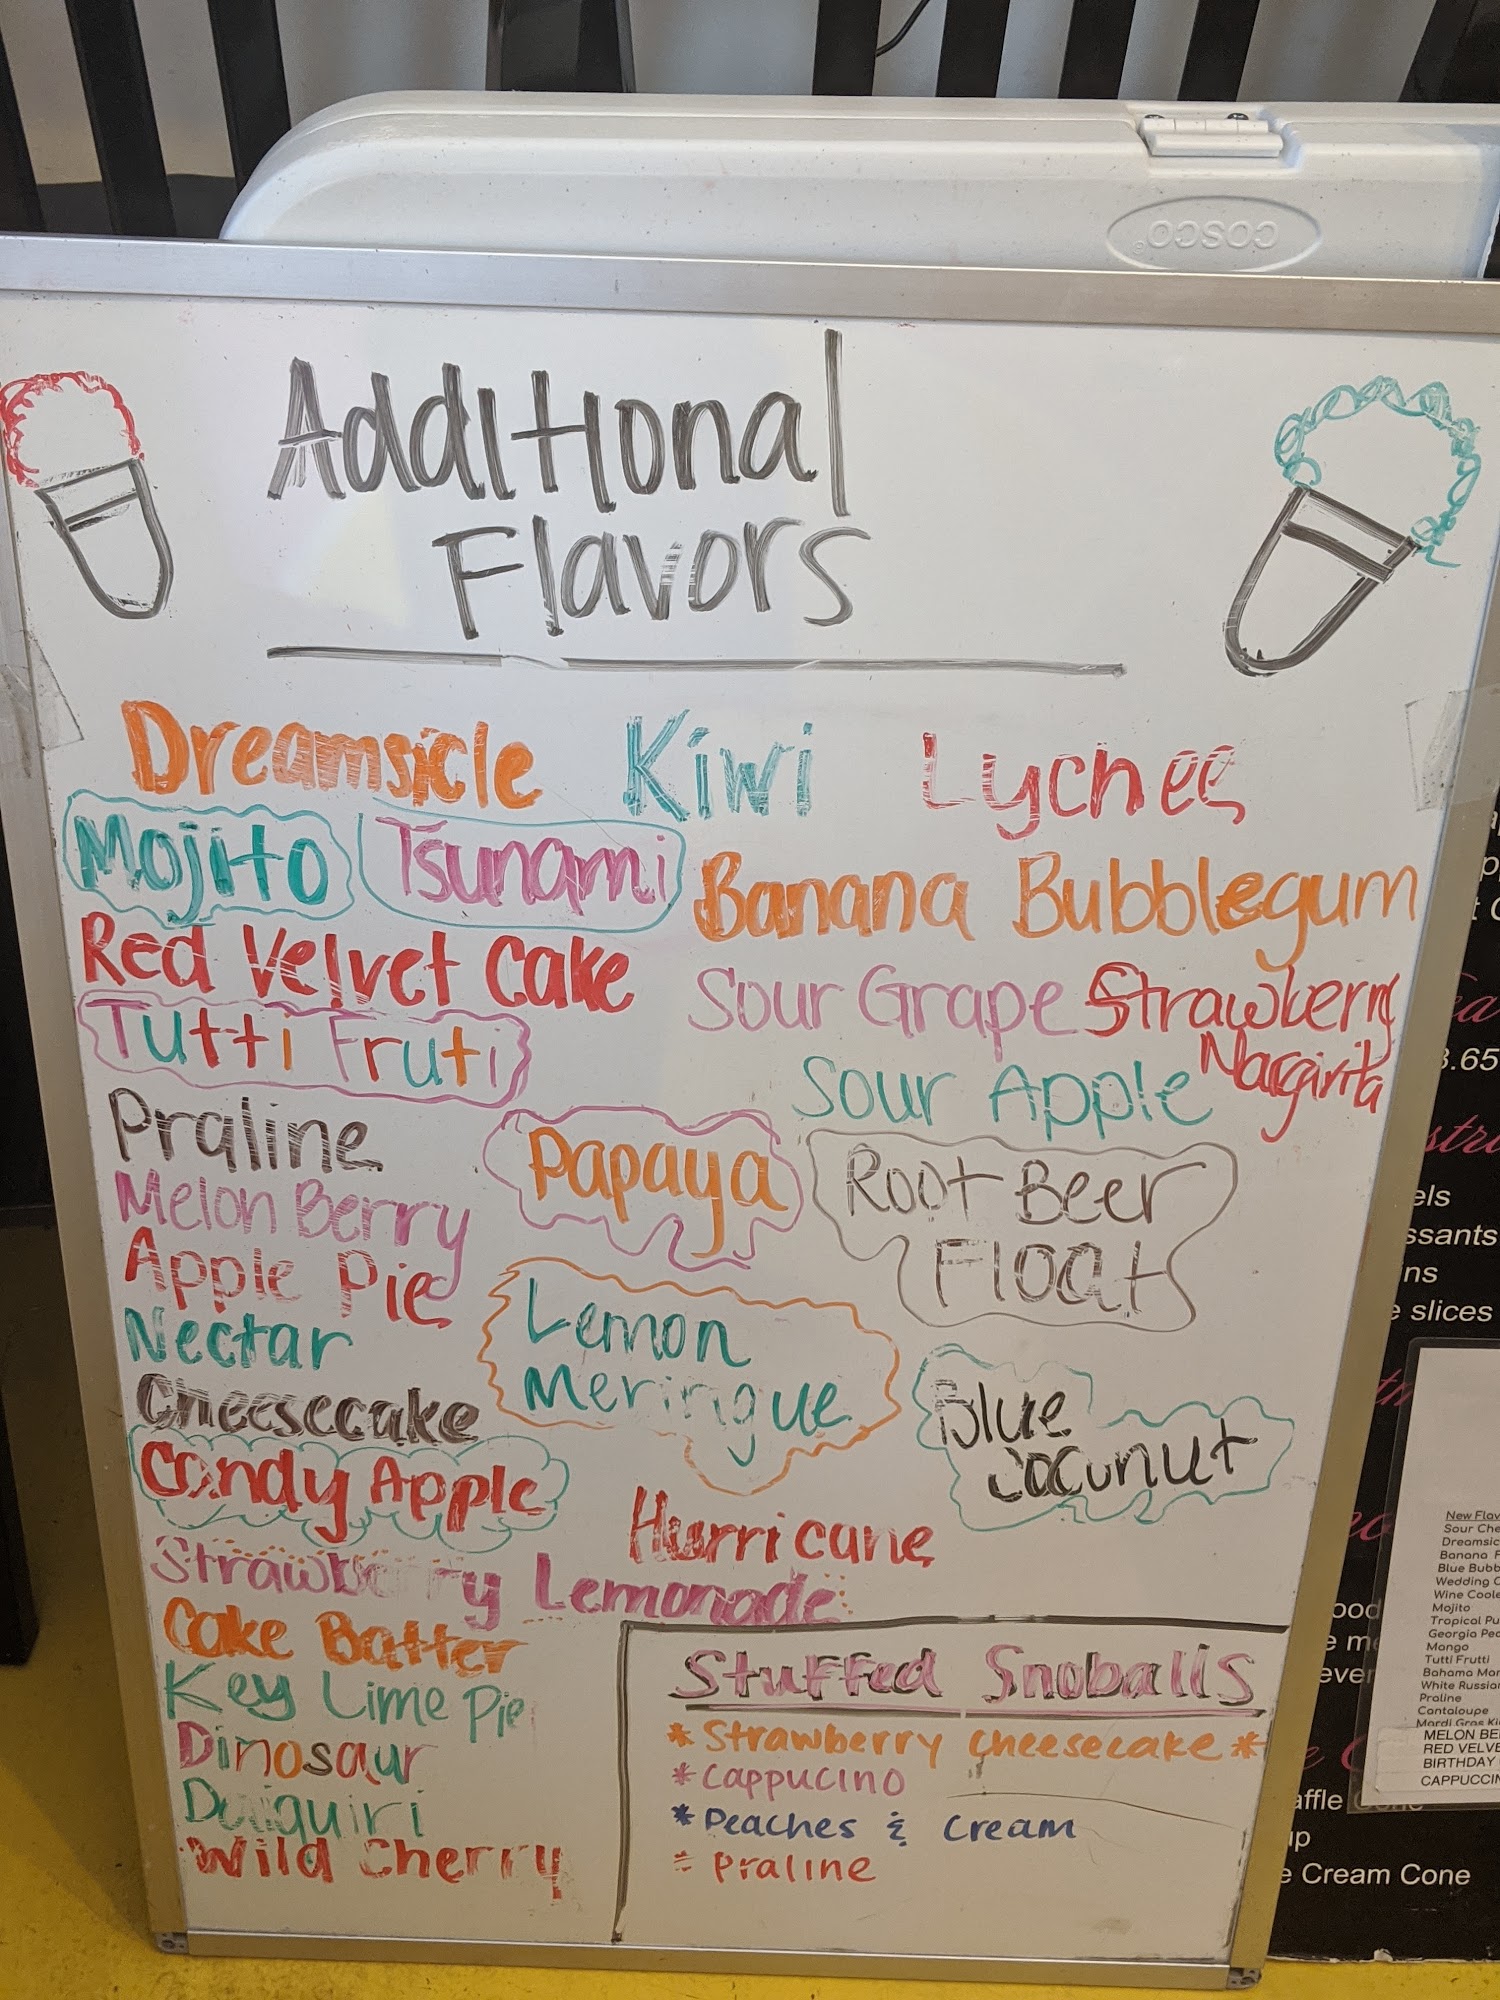 COSCO
Additional
Flavors
Dreamsicle Kiwi Lychee
Mojito Tsunami Banana Bubblegum
Red Velvet Cake Sour Grape Strawberry
Tutti Fruti Sour Apple Margirita
Praline Papaya Root Beer
Melon Berry Float
Apple Pie Lemon
Nectar Meringue Blue
Cheesecake Coconut
Candy Apple Hurricane
Strawberry Lemonade
Cake Batter
Key Lime Pie
Dinosaur
Daiquiri
Wild Cherry
Stuffed Snoballs
* Strawberry Cheesecake *
* Cappucino
* Peaches & Cream
Praline
3.65
els
ssants
ins
slices
New Flav
Sour Che
Dreamsic
Banana F
Blue Bubb
Wedding C
Wine Coole
Mojito
Tropical Pu
Georgia Pea
Mango
Tutti Frutti
Bahama Mam
White Russian
Praline
Cantaloupe
Mardi Gras Ki
MELON BE
RED VELVE
BIRTHDAY
CAPPUCCIN
ood
ever
affle Cone
up
e Cream Cone